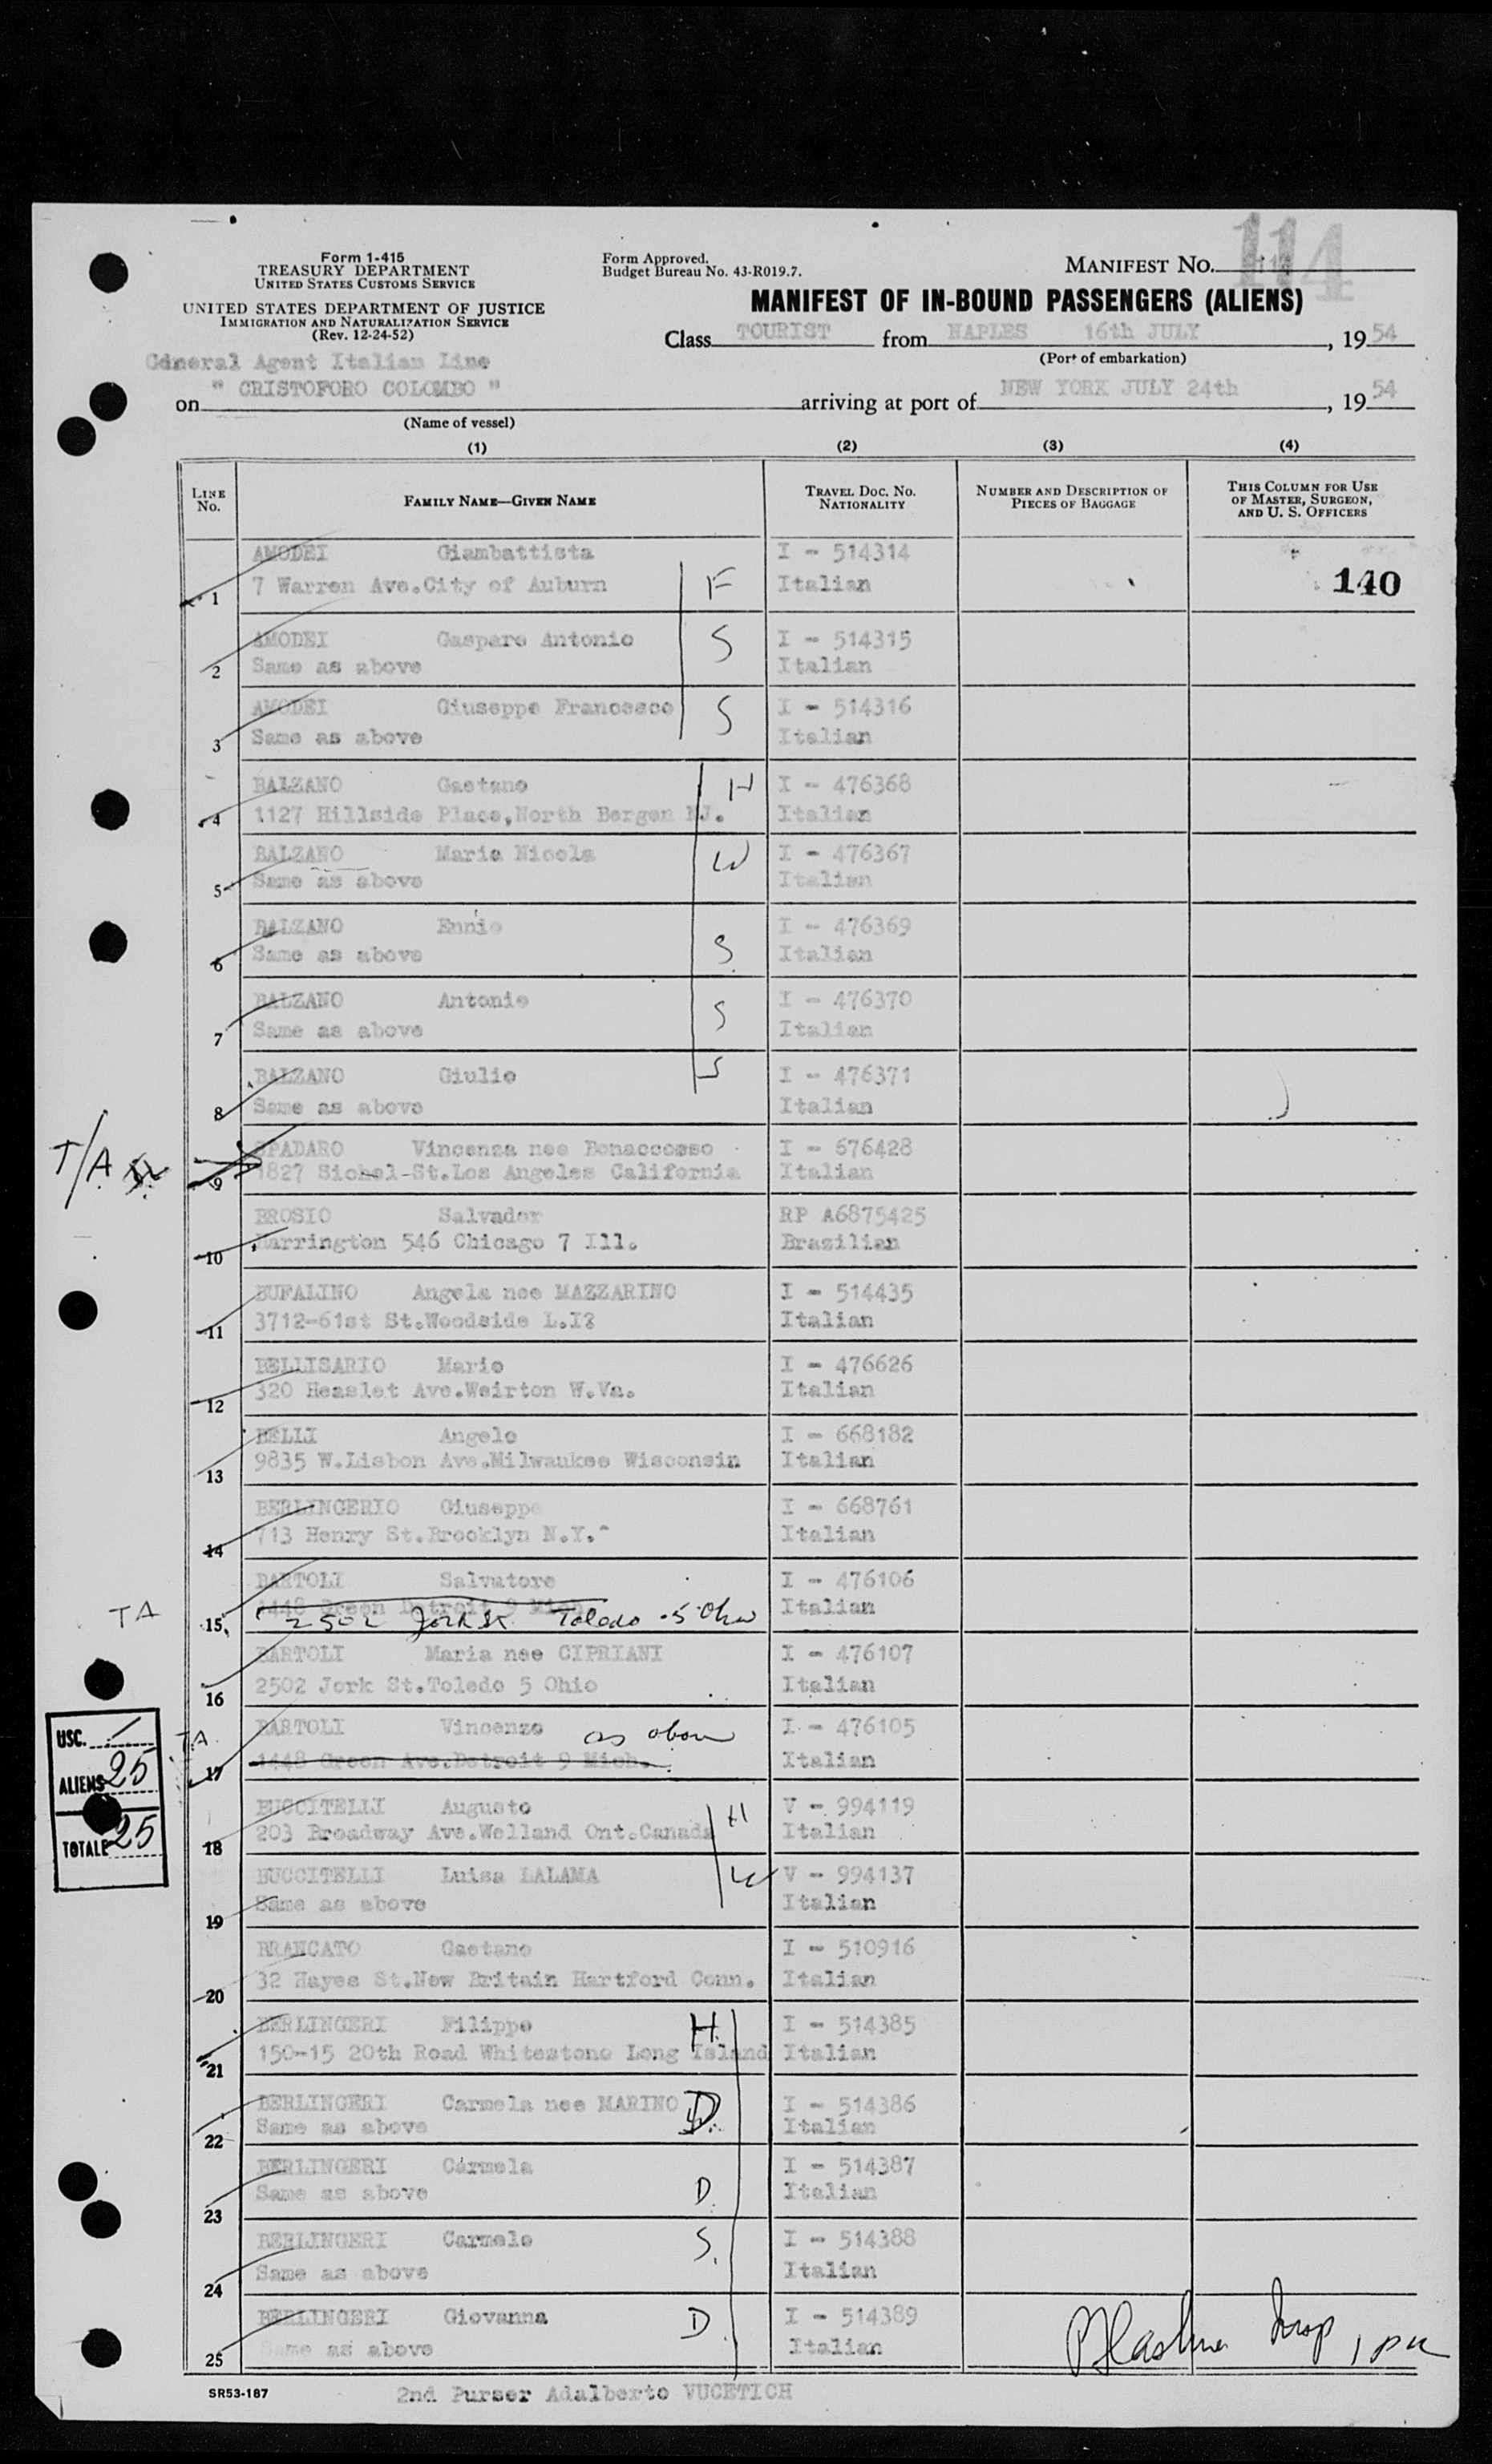 114
Form 1-415
TREASURY DEPARTMENT
UNITED STATES CUSTOMS SERVICE
UNITED STATES DEPARTMENT OF JUSTICE
IMMIGRATION AND NATURALIZATION SERVICE
(Rev. 12-24-52)
Form Approved.
Budget Bureau No. 43-R019.7.
MANIFEST NO.
MANIFEST OF IN-BOUND PASSENGERS (ALIENS)
Class TOURIST from NAPLES 16th JULY, 1954
(Port of embarkation)
General Agent Italian Line
on " CRISTOFORO COLOMBO " arriving at port of NEW YORK JULY 24th, 1954
(Name of vessel)
(1) (2) (3) (4)
LINE NO. FAMILY NAME—GIVEN NAME TRAVEL DOC. NO. NATIONALITY NUMBER AND DESCRIPTION OF PIECES OF BAGGAGE THIS COLUMN FOR USE OF MASTER, SURGEON, AND U. S. OFFICERS
AMODEI Giambattista I - 514314
1 7 Warren Ave.City of Auburn F Italian 140
AMODEI Gaspare Antonio S I - 514315
2 Same as above Italian
AMODEI Giuseppe Francesco S I - 514316
3 Same as above Italian
BALZANO Gaetano H I - 476368
4 1127 Hillside Place,North Bergen NJ. Italian
BALZANO Maria Nicola W I - 476367
5 Same as above Italian
BALZANO Ennio I - 476369
6 Same as above S Italian
BALZANO Antonio I - 476370
7 Same as above S Italian
BALZANO Giulio S I - 476371
8 Same as above Italian
T/A SPADARO Vincenza nee Bonaccorso I - 676428
9 1827 Sichel-St.Los Angeles California Italian
BROSIO Salvador RP A6875425
10 Harrington 546 Chicago 7 Ill. Brazilian
BUFALINO Angela nee MAZZARINO I - 514435
11 3712-61st St.Woodside L.I? Italian
BELLISARIO Mario I - 476626
12 320 Heaslet Ave.Weirton W.Va. Italian
BELLI Angelo I - 668182
13 9835 W.Lisbon Ave.Milwaukee Wisconsin Italian
BERLINGERIO Giuseppe I - 668761
14 713 Henry St.Brooklyn N.Y. Italian
BARTOLI Salvatore I - 476106
TA 15 1448 Green Detroit 9 Mich Italian
2502 Jork St. Toledo 5 Ohio
BARTOLI Maria nee CIPRIANI I - 476107
16 2502 Jork St.Toledo 5 Ohio Italian
TA BARTOLI Vincenzo as above I - 476105
17 1448 Green Ave.Detroit 9 Mich. Italian
USC. /
ALIENS 25
TOTALE 25
BUCCITELLI Augusto H V - 994119
18 203 Broadway Ave.Welland Ont.Canada Italian
BUCCITELLI Luisa LALAMA W V - 994137
19 Same as above Italian
BRANCATO Gaetano I - 510916
20 32 Hayes St.New Britain Hartford Conn. Italian
BERLINGERI Filippo H. I - 514385
21 150-15 20th Road Whitestone Long Island Italian
BERLINGERI Carmela nee MARINO I - 514386
22 Same as above Italian
BERLINGERI Carmela I - 514387
23 Same as above D. Italian
BERLINGERI Carmelo S. I - 514388
24 Same as above Italian
BERLINGERI Giovanna D I - 514389
25 Same as above Italian
SR53-187 2nd Purser Adalberto VUCETICH